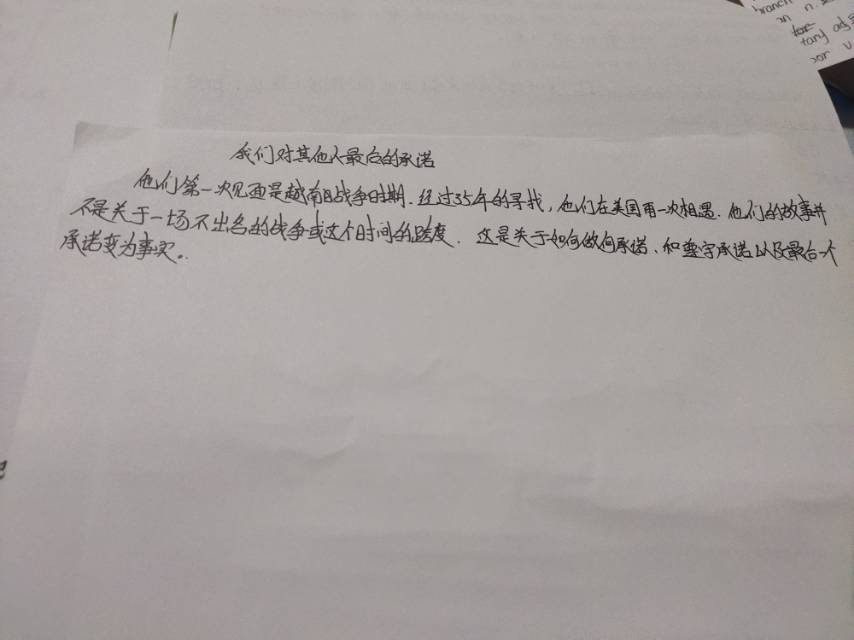 branch
n.
tary adj
我们对其他人最后的承诺
他们第一次见面是越南战争时期.经过35年的寻找,他们在美国再一次相遇.他们的故事并
不是关于一场不出名的战争或这个时间的跨度.这是关于如何做何承诺、和遵守承诺以及最后一个
承诺变为事实。